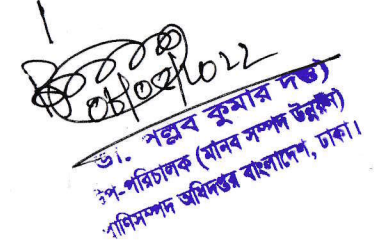 ০৮/০২/২০২২
ডা. পল্লব কুমার দত্ত)
উপ-পরিচালক (মানব সম্পদ উন্নয়ন)
প্রাণিসম্পদ অধিদপ্তর বাংলাদেশ, ঢাকা।